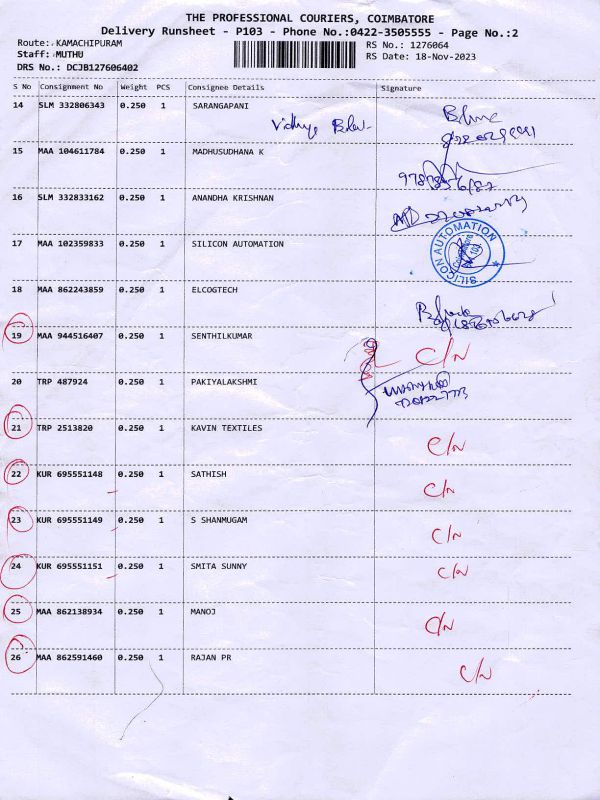 THE PROFESSIONAL COURIERS, COIMBATORE
Delivery Runsheet - P103 - Phone No.:0422-3505555 - Page No.:2
Route: KAMACHIPURAM
RS No.: 1276064
Staff: MUTHU
RS Date: 18-Nov-2023
DRS No.: DCJB127606402
S No Consignment No Weight PCS Consignee Details Signature
14 SLM 332806343 0.250 1 SARANGAPANI
15 MAA 104611784 0.250 1 MADHUSUDHANA K
16 SLM 332833162 0.250 1 ANANDHA KRISHNAN
17 MAA 102359833 0.250 1 SILICON AUTOMATION
SILICON AUTOMATION
18 MAA 862243859 0.250 1 ELCOGTECH
19 MAA 944516407 0.250 1 SENTHILKUMAR C/N
20 TRP 487924 0.250 1 PAKIYALAKSHMI
21 TRP 2513820 0.250 1 KAVIN TEXTILES C/N
22 KUR 695551148 0.250 1 SATHISH C/N
23 KUR 695551149 0.250 1 S SHANMUGAM C/N
24 KUR 695551151 0.250 1 SMITA SUNNY C/N
25 MAA 862138934 0.250 1 MANOJ C/N
26 MAA 862591460 0.250 1 RAJAN PR C/N